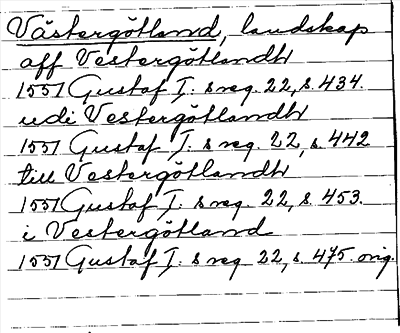 Västergötland, landskap
aff Vestergötlandh
1551 Gustaf I:s reg. 22, s. 434.
udi Vestergötlandh
1551 Gustaf I:s reg. 22, s. 442
till Vestergötlandh
1551 Gustaf I:s reg. 22, s. 453.
i Vestergötland
1551 Gustaf I:s reg. 22, s. 475. orig.